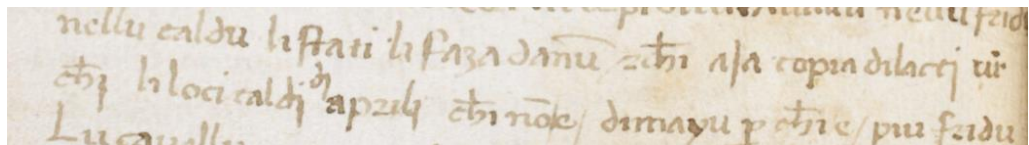 nedu lu frid
nellu caldu li stati li faza danū / ⁊ chī aia copia di lacti vr̄
chī li loci caldi di aprili chī nō e / di mayu p chī e / piu fridu
Lu cavallu